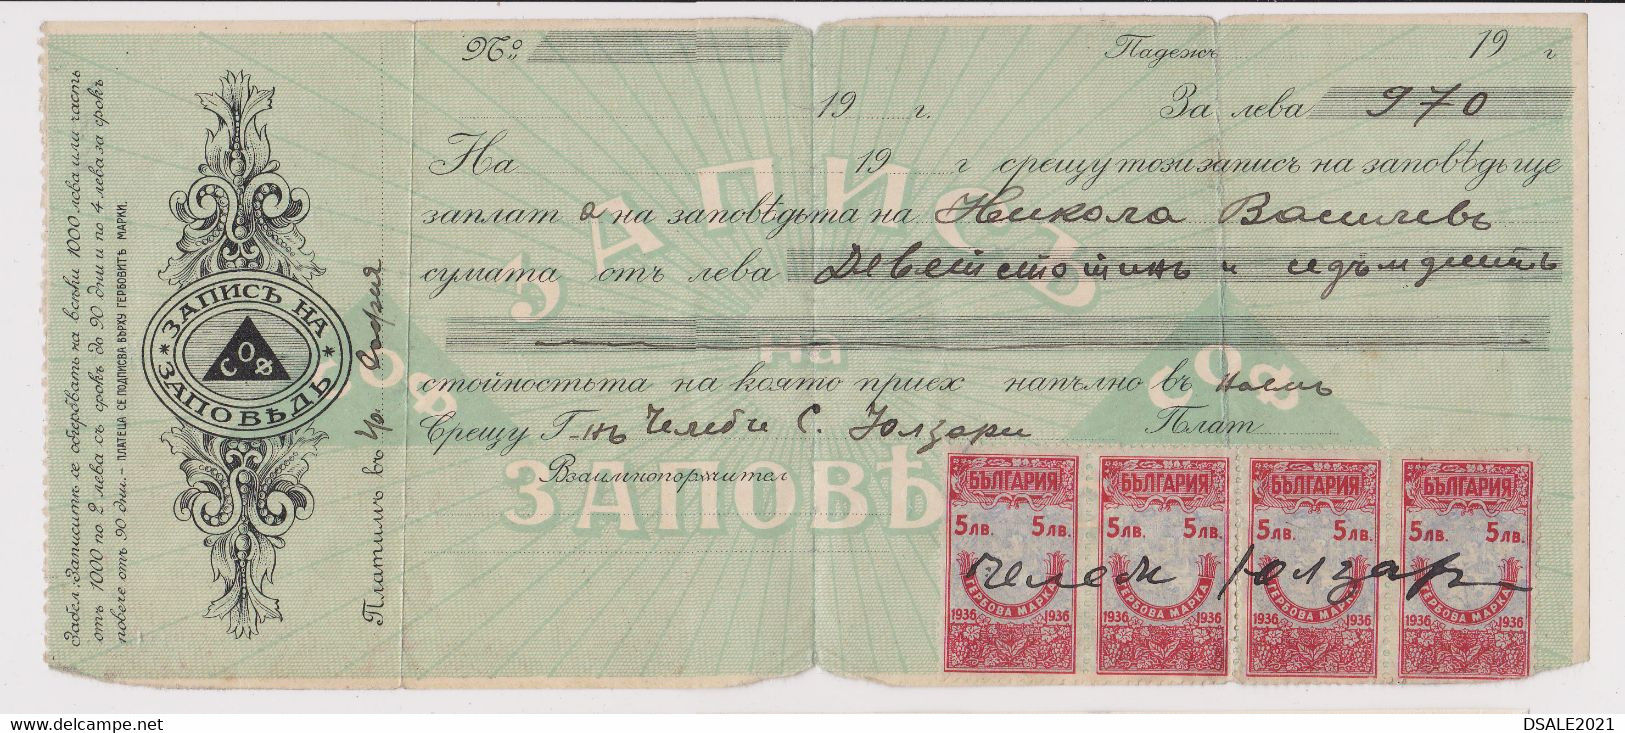 Забел.: Записитѣ се обгербватъ на всѣки 1000 лева или часть
отъ 1000 по 2 лева съ срокъ до 90 дни и по 4 лева за срокъ
повече отъ 90 дни.— ПЛАТЕЦА СЕ ПОДПИСВА ВЪРХУ ГЕРБОВИТѢ МАРКИ.
ЗАПИСЪ НА
СОФ
ЗАПОВѢДЬ
Платимъ въ гр. София
№
Падежъ 19 г
19 г. За лева 970
На 19 г срещу този записъ на заповѣдь ще
заплат а на заповѣдьта на Никола Василевъ
сумата отъ лева Деветстотинъ и седъмдесетъ
стойностьта на която приех напълно въ
Срещу Г-нъ Челеби С. Юлзари Плат
Взаимнопоръчител
ЗАПИСЪ
на
ЗАПОВѢ
СОФ
СОФ
БЪЛГАРИЯ БЪЛГАРИЯ БЪЛГАРИЯ БЪЛГАРИЯ
5 ЛВ. 5 ЛВ. 5 ЛВ. 5 ЛВ. 5 ЛВ. 5 ЛВ. 5 ЛВ. 5 ЛВ.
Челеби Юлзари
ГЕРБОВА МАРКА ГЕРБОВА МАРКА ГЕРБОВА МАРКА ГЕРБОВА МАРКА
1936 1936 1936 1936 1936 1936 1936 1936
www.delcampe.net
DSALE2021